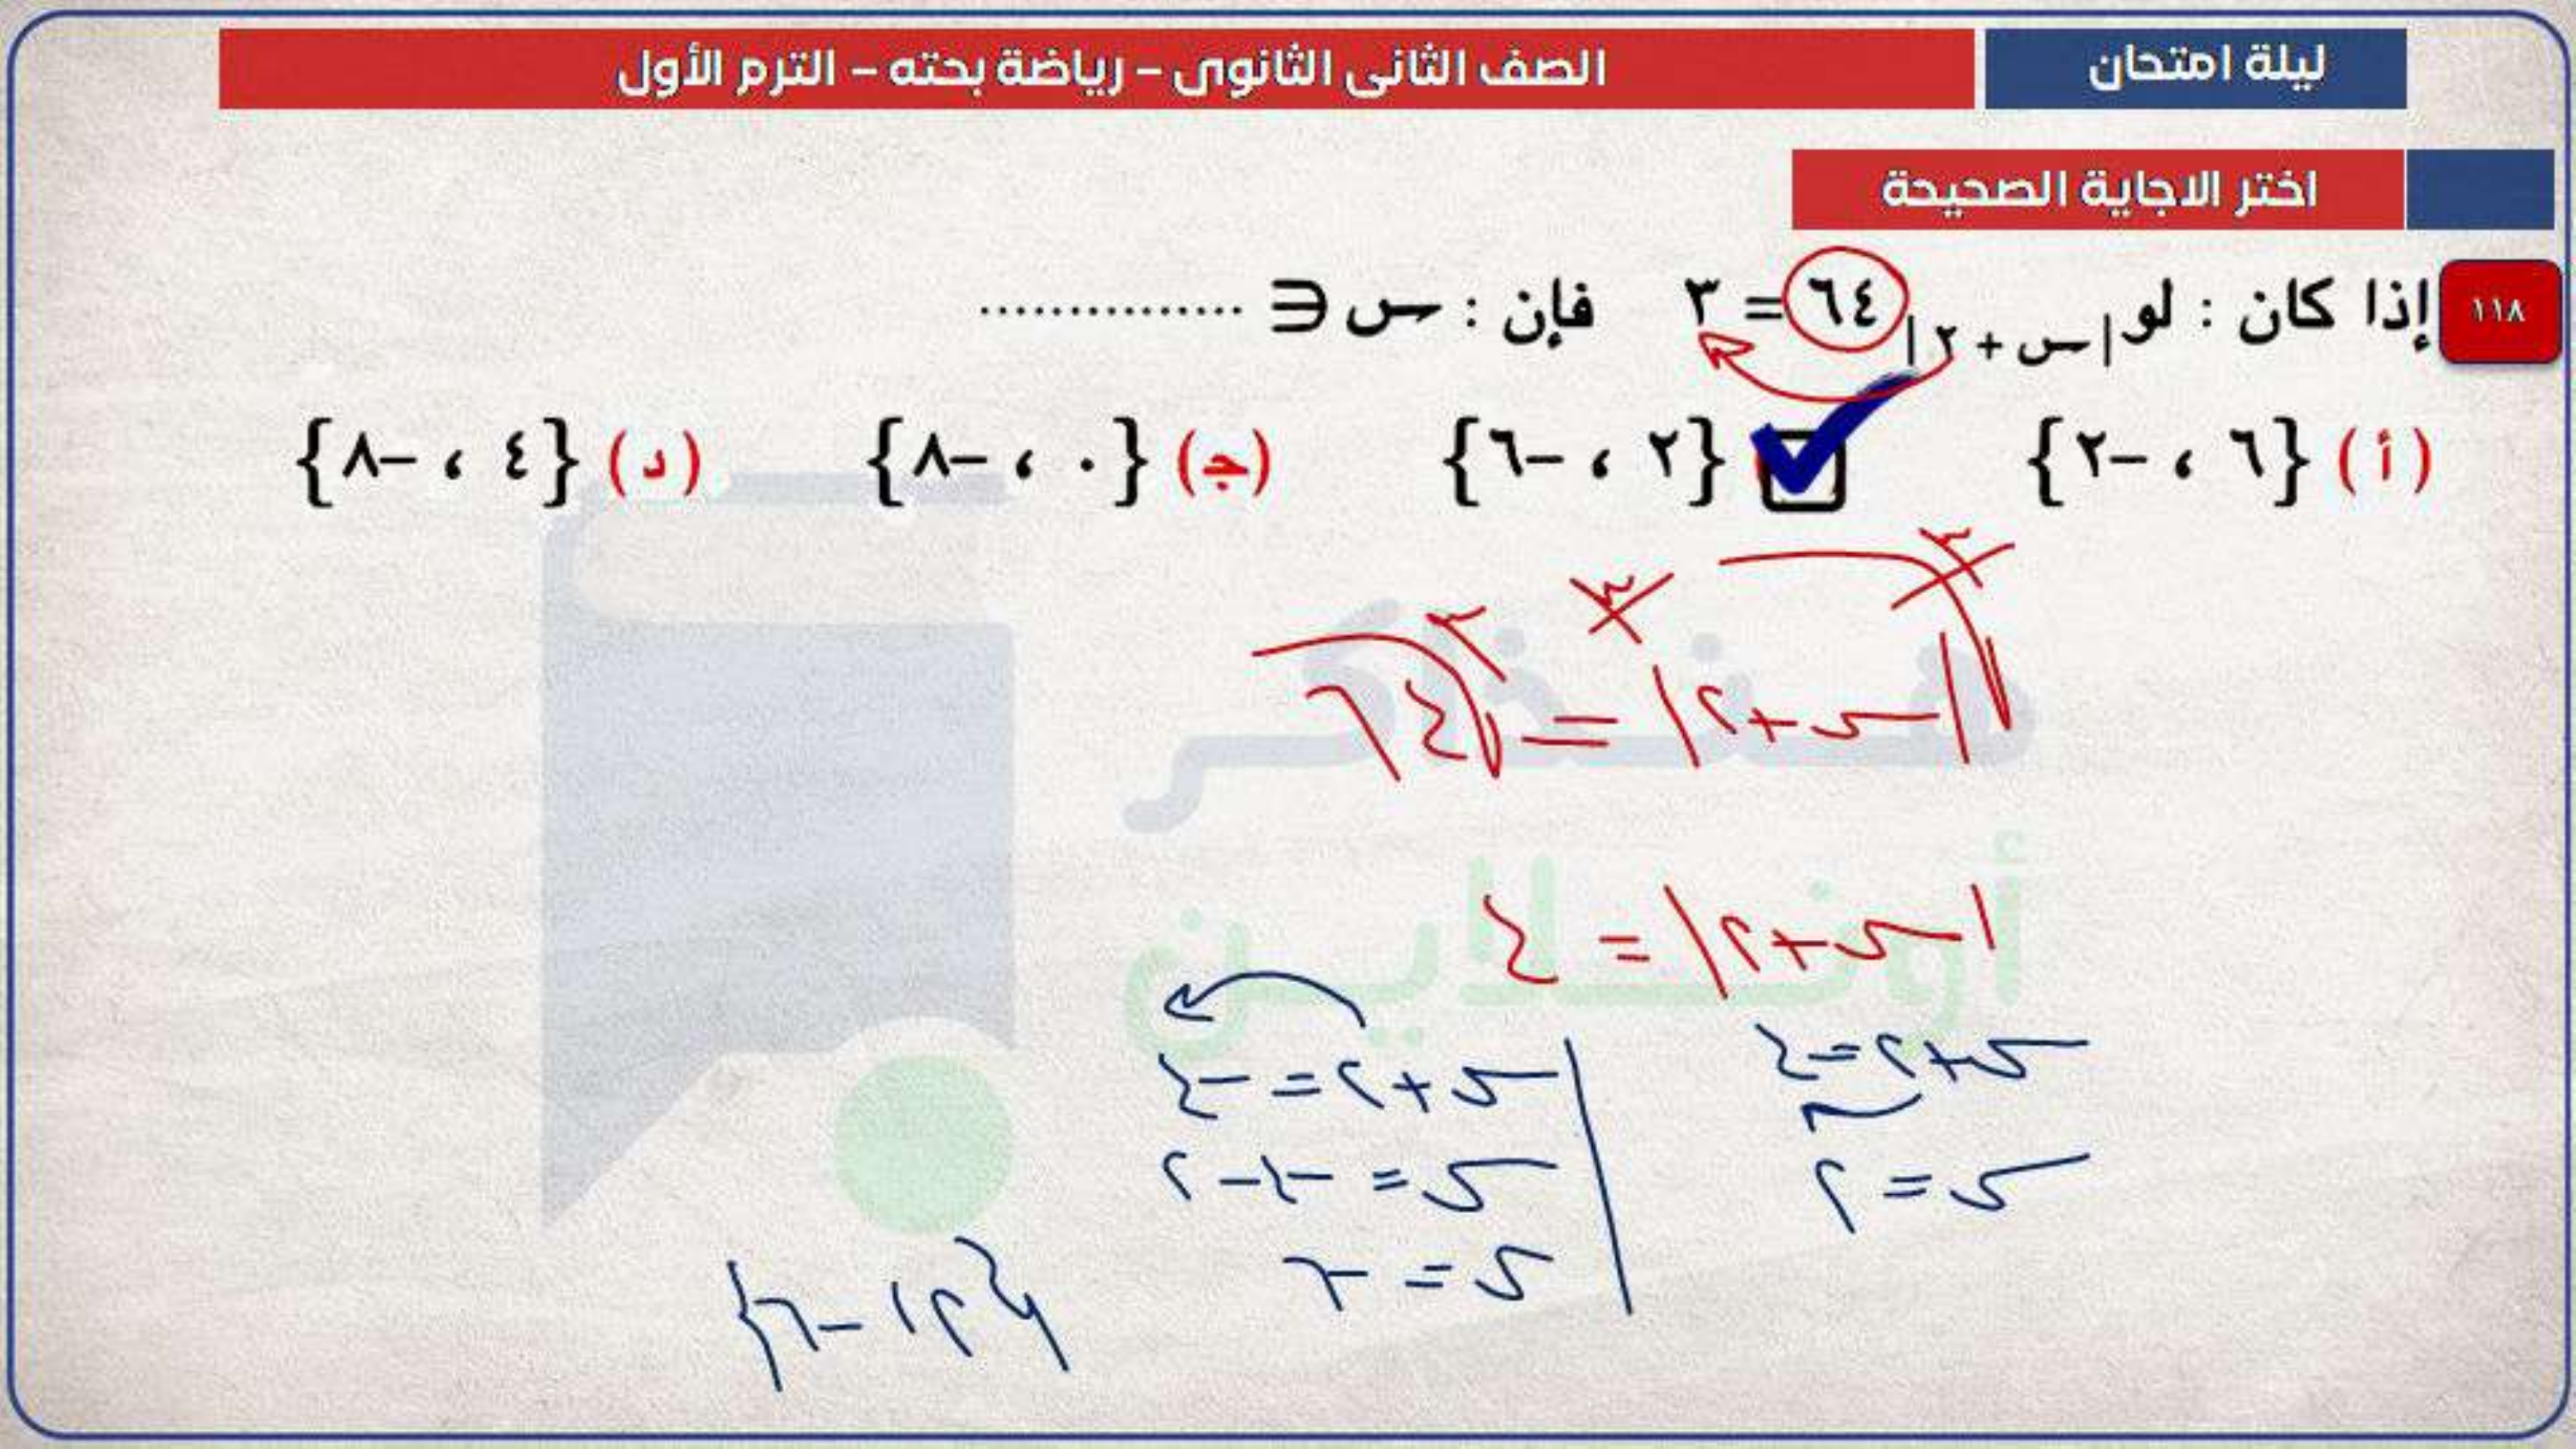 ليلة امتحان
الصف الثانى الثانوى – رياضة بحته – الترم الأول
اختر الاجاية الصحيحة
١١٨ إذا كان : لو|س + ٢| ٦٤ = ٣ فإن : س ∈ ...............
(أ) {٦ ، -٢} {٢ ، -٦} (ج) {٠ ، -٨} (د) {٤ ، -٨}
٣ ٣ ٣
|س+٢| = ٦٤
|س+٢| = ٤
س+٢=٤
س=٢
س+٢ = -٤
س = -٤-٢
س = -٦
{٢، -٦}
هنذاكر
أونلاين